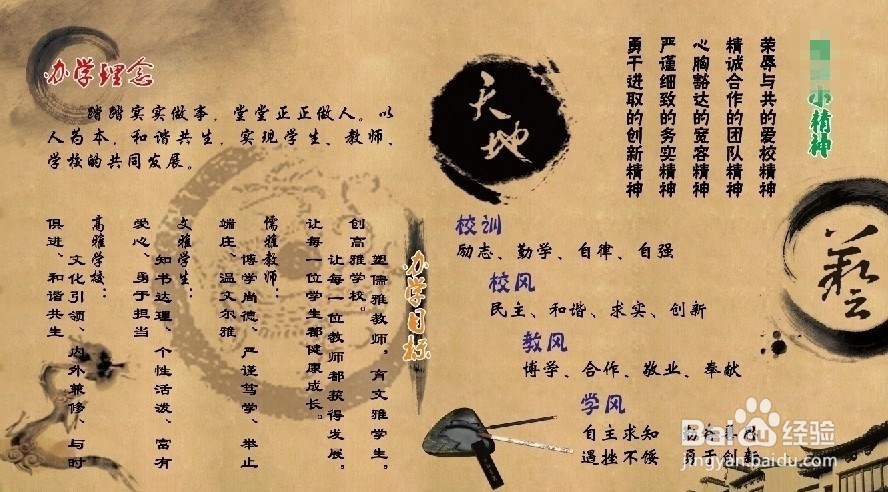 办学理念
踏踏实实做事，堂堂正正做人。以
人为本，和谐共生，实现学生、教师、
学校的共同发展。
办学目标
塑儒雅教师，育文雅学生，
创高雅学校。
让每一位教师都获得发展，
让每一位学生都健康成长。
儒雅教师：
博学尚德、严谨笃学、举止
端庄、温文尔雅
文雅学生：
知书达理、个性活泼、富有
爱心、勇于担当
高雅学校：
文化引领、内外兼修、与时
俱进、和谐共生
天地
小精神
荣辱与共的爱校精神
精诚合作的团队精神
心胸豁达的宽容精神
严谨细致的务实精神
勇于进取的创新精神
艺
校训
励志、勤学、自律、自强
校风
民主、和谐、求实、创新
教风
博学、合作、敬业、奉献
学风
自主求知
遇挫不馁 勇于创新
Baidu 经验
jingyan.baidu.com